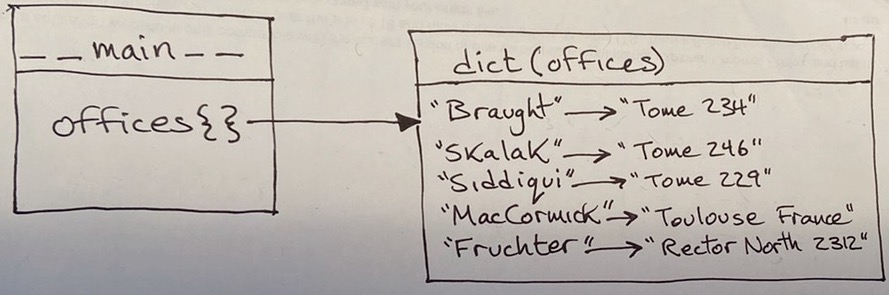 __main__
offices{}
dict (offices)
"Braught" → "Tome 234"
"Skalak" → "Tome 246"
"Siddiqui" → "Tome 229"
"MacCormick" → "Toulouse France"
"Fruchter" → "Rector North 2312"